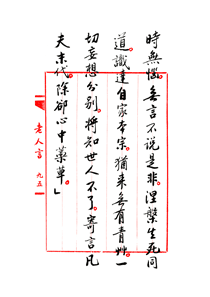 時無惱。無言不說是非。涅槃生死同
道。識達自家本宗。猶来無有青皂。一
切妄想分别。將知世人不了。寄言凡
夫末代。除却心中藁草」
老人言 九五